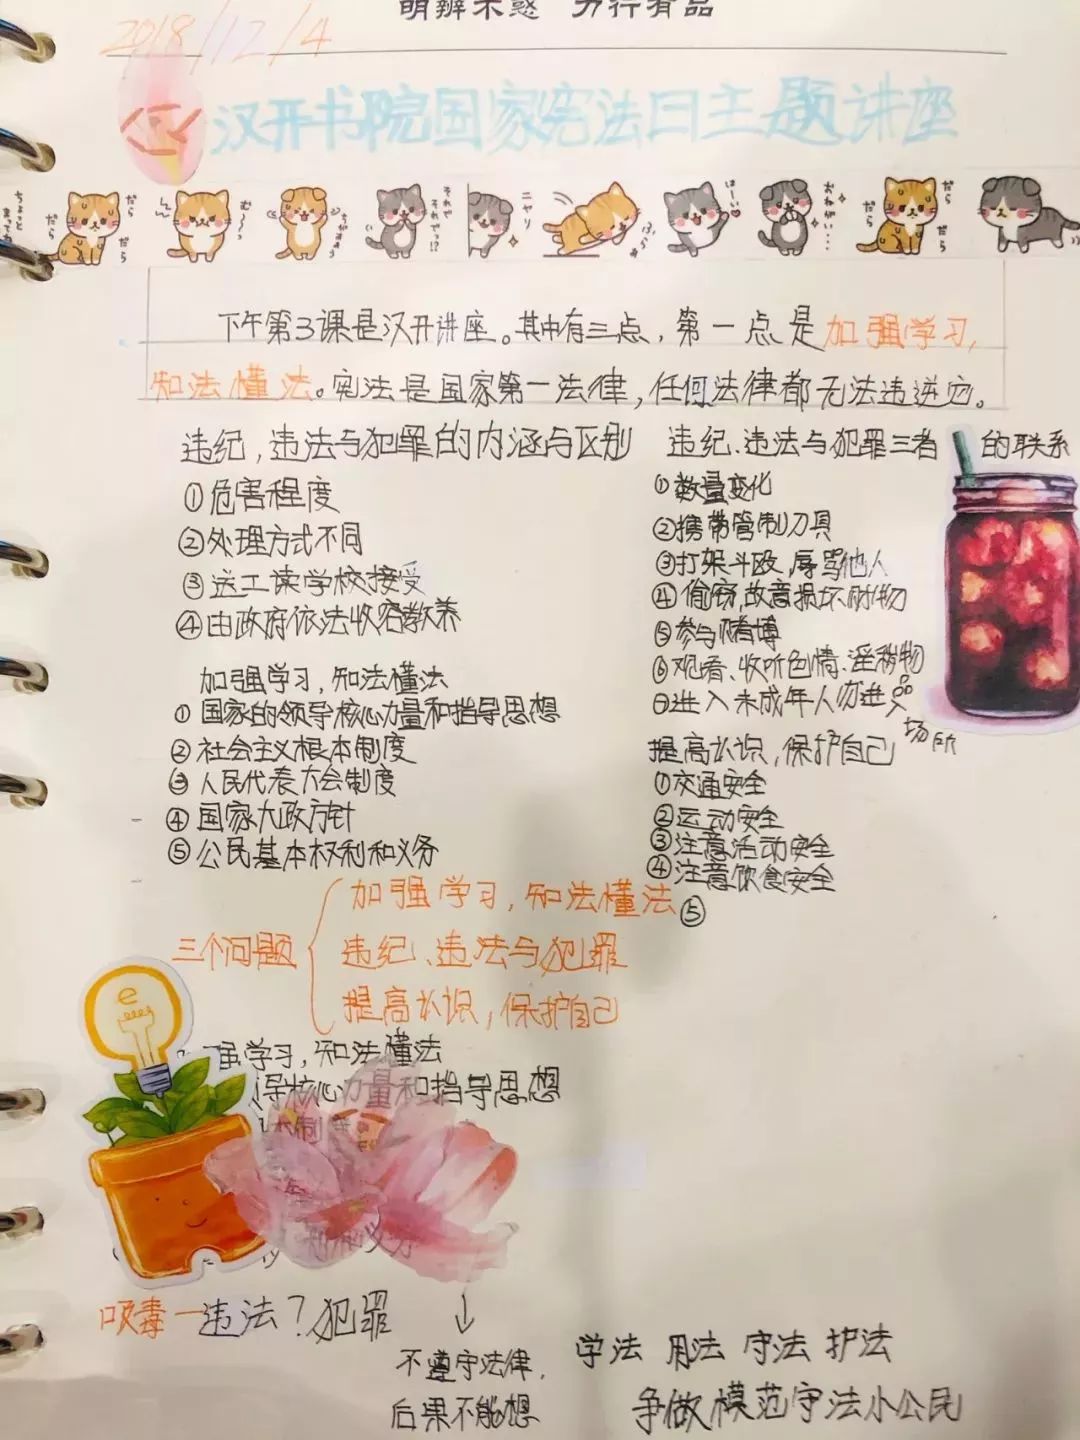 明辨不惑 力行有品
2018/12/4
汉开书院国家宪法日主题讲座
下午第3课是汉开讲座。其中有三点，第一点是加强学习，
知法懂法。宪法是国家第一法律，任何法律都无法违逆它。
违纪，违法与犯罪的内涵与区别
①危害程度
②处理方式不同
③送工读学校接受
④由政府依法收容教养
加强学习，知法懂法
①国家的领导核心力量和指导思想
②社会主义根本制度
③人民代表大会制度
④国家大政方针
⑤公民基本权利和义务
违纪、违法与犯罪三者的联系
①数量变化
②携带管制刀具
③打架斗殴，辱骂他人
④偷窃，故意损坏财物
⑤参与赌博
⑥观看、收听色情、淫秽物品
⑦进入未成年人勿进场所
提高认识，保护自己
①交通安全
②运动安全
③注意活动安全
④注意饮食安全
⑤
三个问题
加强学习，知法懂法
违纪、违法与犯罪
提高认识，保护自己
强学习，知法懂法
导核心力量和指导思想
本制
吸毒一违法？犯罪
不遵守法律，
后果不能想
学法 用法 守法 护法
争做模范守法小公民